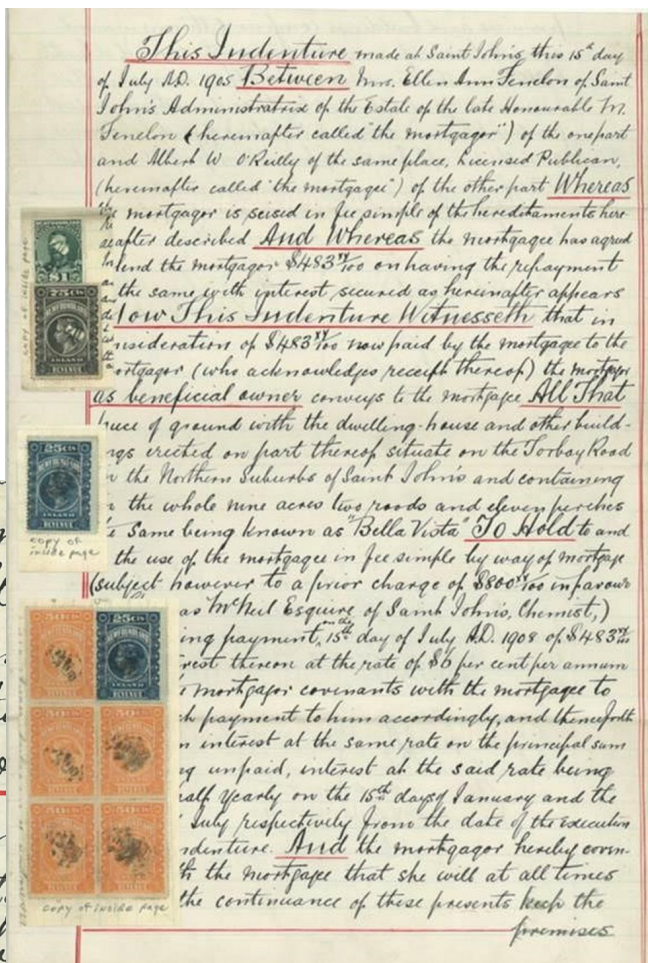 This Indenture made at Saint John's this 15th day
of July A.D. 1905 Between Mrs. Ellen Ann Fenelon of Saint
John's Administratrix of the Estate of the late Honourable M.
Fenelon (hereinafter called "the mortgagor") of the one part
and Albert W O'Reilly of the same place, Licensed Publican,
(hereinafter called "the mortgagee") of the other part Whereas
the mortgagor is seised in fee simple of the hereditaments here
inafter described And Whereas the mortgagee has agreed
lend the mortgagor $483 xx/100 on having the repayment
the same with interest secured as hereinafter appears
Now This Indenture Witnesseth that in
nsideration of $483 xx/100 now paid by the mortgagee to the
ortgagor (who acknowledges receipt thereof) the mortgagor
as beneficial owner conveys to the mortgagee All That
piece of ground with the dwelling-house and other build-
ngs erected on part thereof situate on the Torbay Road
n the Northern Suburbs of Saint John's and containing
n the whole nine acres two roods and eleven perches
e same being known as "Bella Vista" To Hold to and
the use of the mortgagee in fee simple by way of mortgage
(subject however to a prior charge of $800 xx/100 in favour
as McNeil Esquire of Saint John's, Chemist,)
ing payment, on the 15th day of July A.D. 1908 of $483 xx/100
rest thereon at the rate of $6 per cent per annum
mortgagor covenants with the mortgagee to
h payment to him accordingly, and thenceforth
n interest at the same rate on the principal sum
g unpaid, interest at the said rate being
alf Yearly on the 15th days of January and the
July respectively from the date of the execution
ndenture. And the mortgagor hereby coven-
h the mortgagee that she will at all times
the continuance of these presents keep the
premises
$1
copy of inside page
75 CTS
NEWFOUNDLAND
INLAND
REVENUE
25 CTS
NEWFOUNDLAND
INLAND
REVENUE
copy of
inside page
50 CTS
INLAND
REVENUE
25 CTS
NEWFOUNDLAND
INLAND
REVENUE
50 CTS
50 CTS
INLAND
INLAND
REVENUE
REVENUE
50 CTS
50 CTS
INLAND
INLAND
REVENUE
REVENUE
copy of inside page